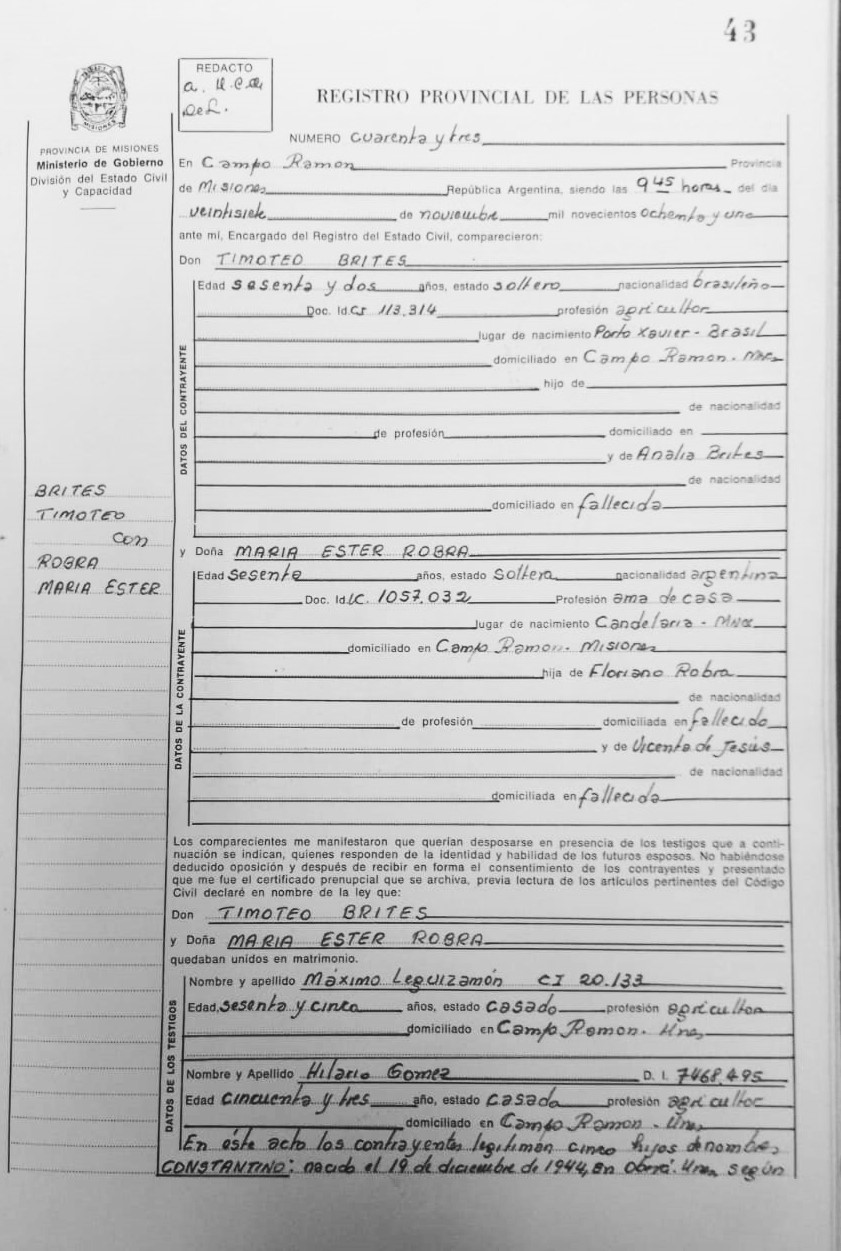 43
REDACTO
a. u.c.a.
De L.
REGISTRO PROVINCIAL DE LAS PERSONAS
MISIONES
PROVINCIA DE MISIONES
Ministerio de Gobierno
División del Estado Civil
y Capacidad
NUMERO cuarenta y tres
En Campo Ramon Provincia
de Misiones República Argentina, siendo las 9 45 horas del día
veintisiete de noviembre mil novecientos ochenta y uno
ante mí, Encargado del Registro del Estado Civil, comparecieron:
Don TIMOTEO BRITES
DATOS DEL CONTRAYENTE
Edad sesenta y dos años, estado soltero nacionalidad brasileño
Doc. Id. CI 113.314 profesión agricultor
lugar de nacimiento Porto Xavier - Brasil
domiciliado en Campo Ramon. Mnes
hijo de
de nacionalidad
de profesión domiciliado en
y de Analia Brites
de nacionalidad
domiciliado en fallecida
BRITES
TIMOTEO
con
ROBRA
MARIA ESTER
y Doña MARIA ESTER ROBRA
DATOS DE LA CONTRAYENTE
Edad sesenta años, estado soltera nacionalidad argentina
Doc. Id. LC. 1057.032 Profesión ama de casa
lugar de nacimiento Candelaria - Mnes
domiciliado en Campo Ramon - Misiones
hija de Floriano Robra
de nacionalidad
de profesión domiciliada en fallecido
y de Vicenta de Jesús
de nacionalidad
domiciliada en fallecida
Los comparecientes me manifestaron que querían desposarse en presencia de los testigos que a conti-
nuación se indican, quienes responden de la identidad y habilidad de los futuros esposos. No habiéndose
deducido oposición y después de recibir en forma el consentimiento de los contrayentes y presentado
que me fue el certificado prenupcial que se archiva, previa lectura de los artículos pertinentes del Código
Civil declaré en nombre de la ley que:
Don TIMOTEO BRITES
y Doña MARIA ESTER ROBRA
quedaban unidos en matrimonio.
DATOS DE LOS TESTIGOS
Nombre y apellido Máximo Leguizamón CI 20.133
Edad, sesenta y cinco años, estado casado profesión agricultor
domiciliado en Campo Ramon. Mnes
Nombre y Apellido Hilario Gomez D. I. 7468.495
Edad cincuenta y tres año, estado casado profesión agricultor
domiciliado en Campo Ramon. Mnes
En éste acto los contrayentes legitiman cinco hijos de nombre,
CONSTANTINO: nacido el 19 de diciembre de 1944, en Oberá. Mnes, según